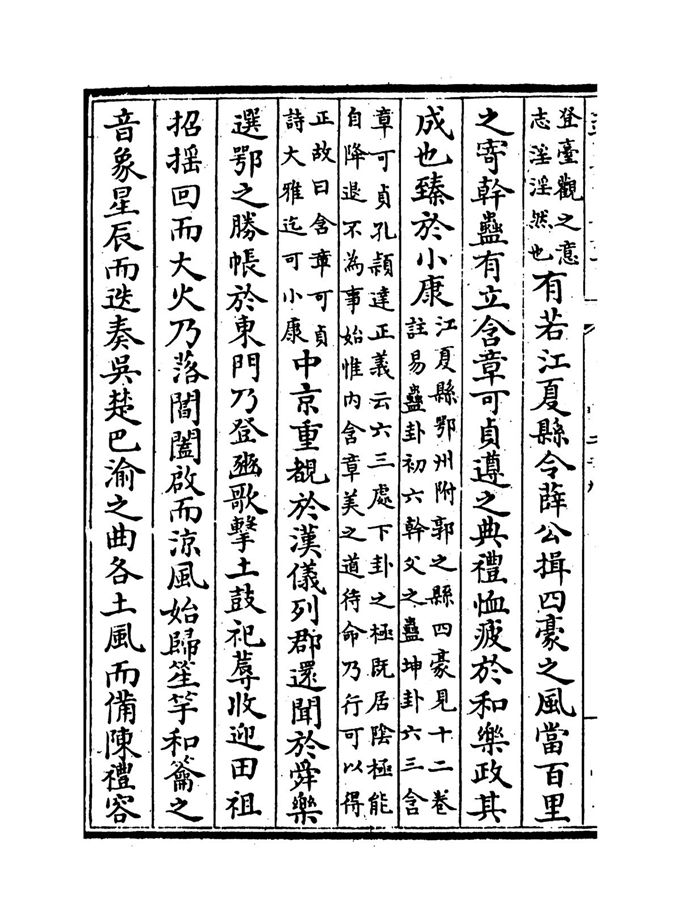 登臺觀之意
志淫淫然也
有若江夏縣令薛公揖四豪之風當百里
之寄幹蠱有立含章可貞遵之典禮恤疲於和樂政其
成也臻於小康
江夏縣鄂州附郭之縣四豪見十二卷
註易蠱卦初六幹父之蠱坤卦六三含
章可貞孔頴達正義云六三處下卦之極既居陰極能
自降退不為事始惟内含章美之道待命乃行可以得
正故曰含章可貞
詩大雅迄可小康
中京重覩於漢儀列郡還聞於舜樂
選鄂之勝帳於東門乃登豳歌擊土鼓祀蓐收迎田祖
招揺回而大火乃落閶闔啟而涼風始歸笙竽和籥之
音象星辰而迭奏吳楚巴渝之曲各土風而備陳禮容